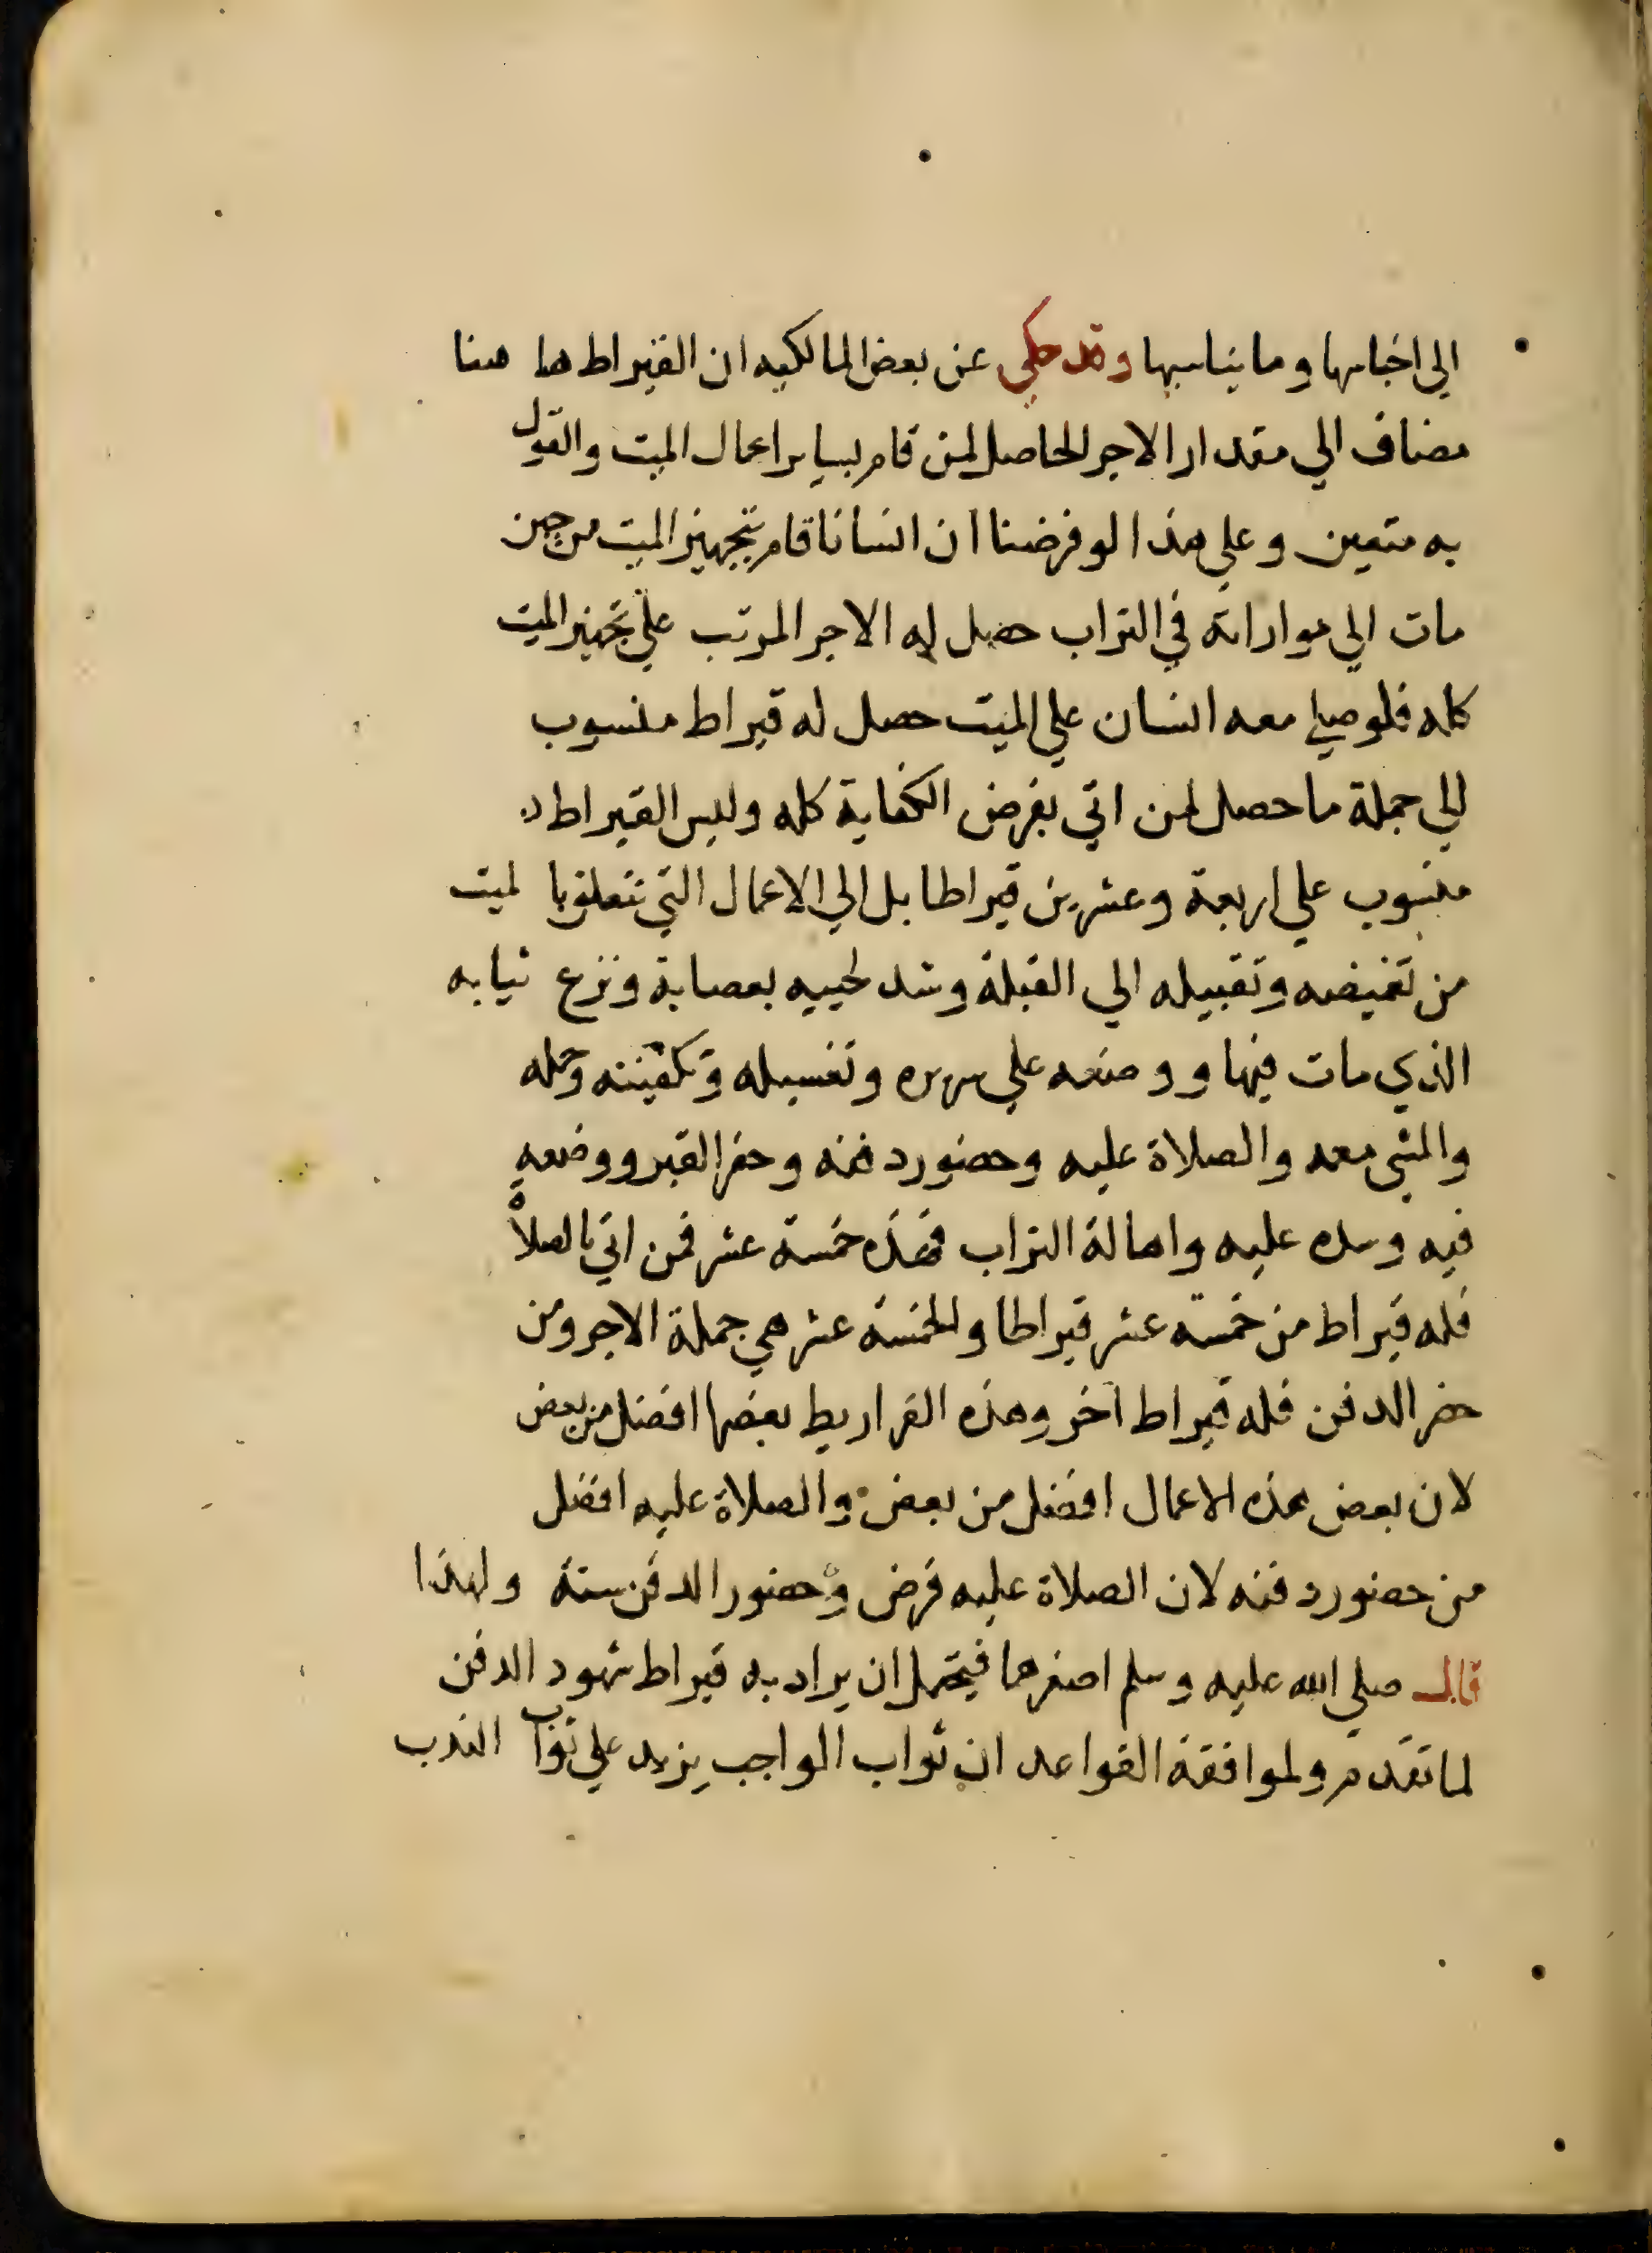 الي اخباسها وما يناسبها وقد حكي عن بعض المالكيه ان القيراط ها هنا
مضاف الي مقدار الاجر الحاصل لمن قام بساير اعمال الميت والقول
به متعين وعلي هذا لو فرضنا ان انسانا قام بتجهيز الميت من حين
مات الي مواراته في التراب حصل له الاجر المرتب علي تجهيز الميت
كله فلو صلي معه انسان علي الميت حصل له قيراط منسوب
الي جملة ما حصل لمن اتي بفرض الكفاية كله وليس القيراط
منسوب علي اربعة وعشرين قيراطا بل الي الاعمال التي تتعلق با لميت
من تغميضه وتقبيله الي القبلة وشد لحييه بعصابة ونزع ثيابه
الذي مات فيها ووضعه علي سريره وتغسيله وتكفينه وحمله
والمشي معه والصلاة عليه وحضور دفنه وحفر القبر ووضعه
فيه وسده عليه واهالة التراب فهذه خمسة عشر فمن اتي بالصلاة
فله قيراط من خمسة عشر قيراطا والخمسة عشر هي جملة الاجر ومن
حضر الدفن فله قيراط آخر وهذه القراريط بعضها افضل من بعض
لان بعض هذه الاعمال افضل من بعض والصلاة عليه افضل
من حضور دفنه لان الصلاة عليه فرض وحضور الدفن سنة ولهذا
قال صلي الله عليه وسلم اصغرهما فيحتمل ان يراد به قيراط شهود الدفن
لما تقدم ولموافقة القواعد ان ثواب الواجب يزيد علي ثواب الندب